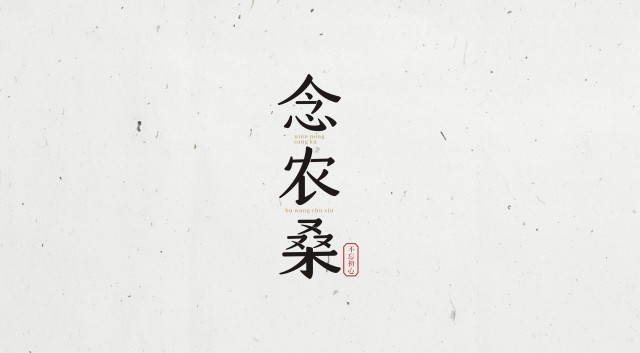 念
nian nong
sang ka
农
bu wang chu xin
桑
不忘初心